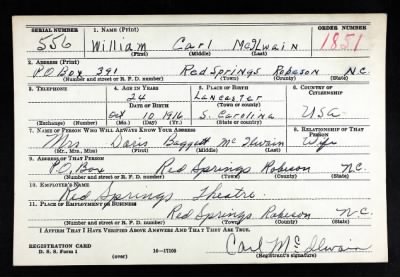 SERIAL NUMBER 1. NAME (Print) ORDER NUMBER
556 William Carl McIlwain 1851
(First) (Middle) (Last)
2. ADDRESS (Print)
P.O. Box 391 Red Springs Robeson N.C.
(Number and street or R. F. D. number) (Town) (County) (State)
3. TELEPHONE 4. AGE IN YEARS 5. PLACE OF BIRTH 6. COUNTRY OF CITIZENSHIP
24 Lancaster
DATE OF BIRTH (Town or county)
Oct 10 1916 S. Carolina USA
(Exchange) (Number) (Mo.) (Day) (Yr.) (State or country)
7. NAME OF PERSON WHO WILL ALWAYS KNOW YOUR ADDRESS 8. RELATIONSHIP OF THAT PERSON
Mrs Doris Baggett McIlwain Wife
(Mr., Mrs., Miss) (First) (Middle) (Last)
9. ADDRESS OF THAT PERSON
P.O. Box Red Springs Robeson N.C.
(Number and street or R. F. D. number) (Town) (County) (State)
10. EMPLOYER'S NAME
Red Springs Theatre
11. PLACE OF EMPLOYMENT OR BUSINESS
Red Springs Robeson N.C.
(Number and street or R. F. D. number) (Town) (County) (State)
I AFFIRM THAT I HAVE VERIFIED ABOVE ANSWERS AND THAT THEY ARE TRUE.
REGISTRATION CARD
D. S. S. Form 1 16—17105 Carl McIlwain
(over) (Registrant's signature)